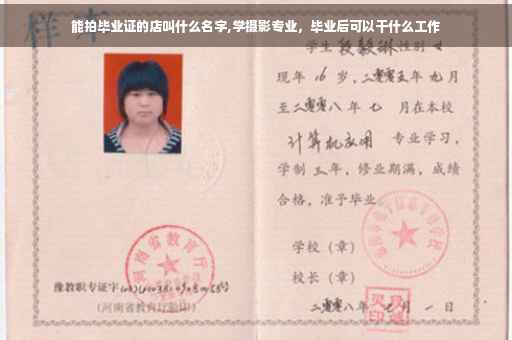 能拍毕业证的店叫什么名字,学摄影专业，毕业后可以干什么工作
样本
学生 段毅琳 性别 女
现年 16 岁，二零零五年 九月
至二零零八年 七 月在本校
计算机应用 专业学习，
学制 三年，修业期满，成绩
合格，准予毕业
学校（章）
校长（章）
河南省教育厅
豫教职专证字
（河南省教育厅验印）
二零零八年 月 一 日